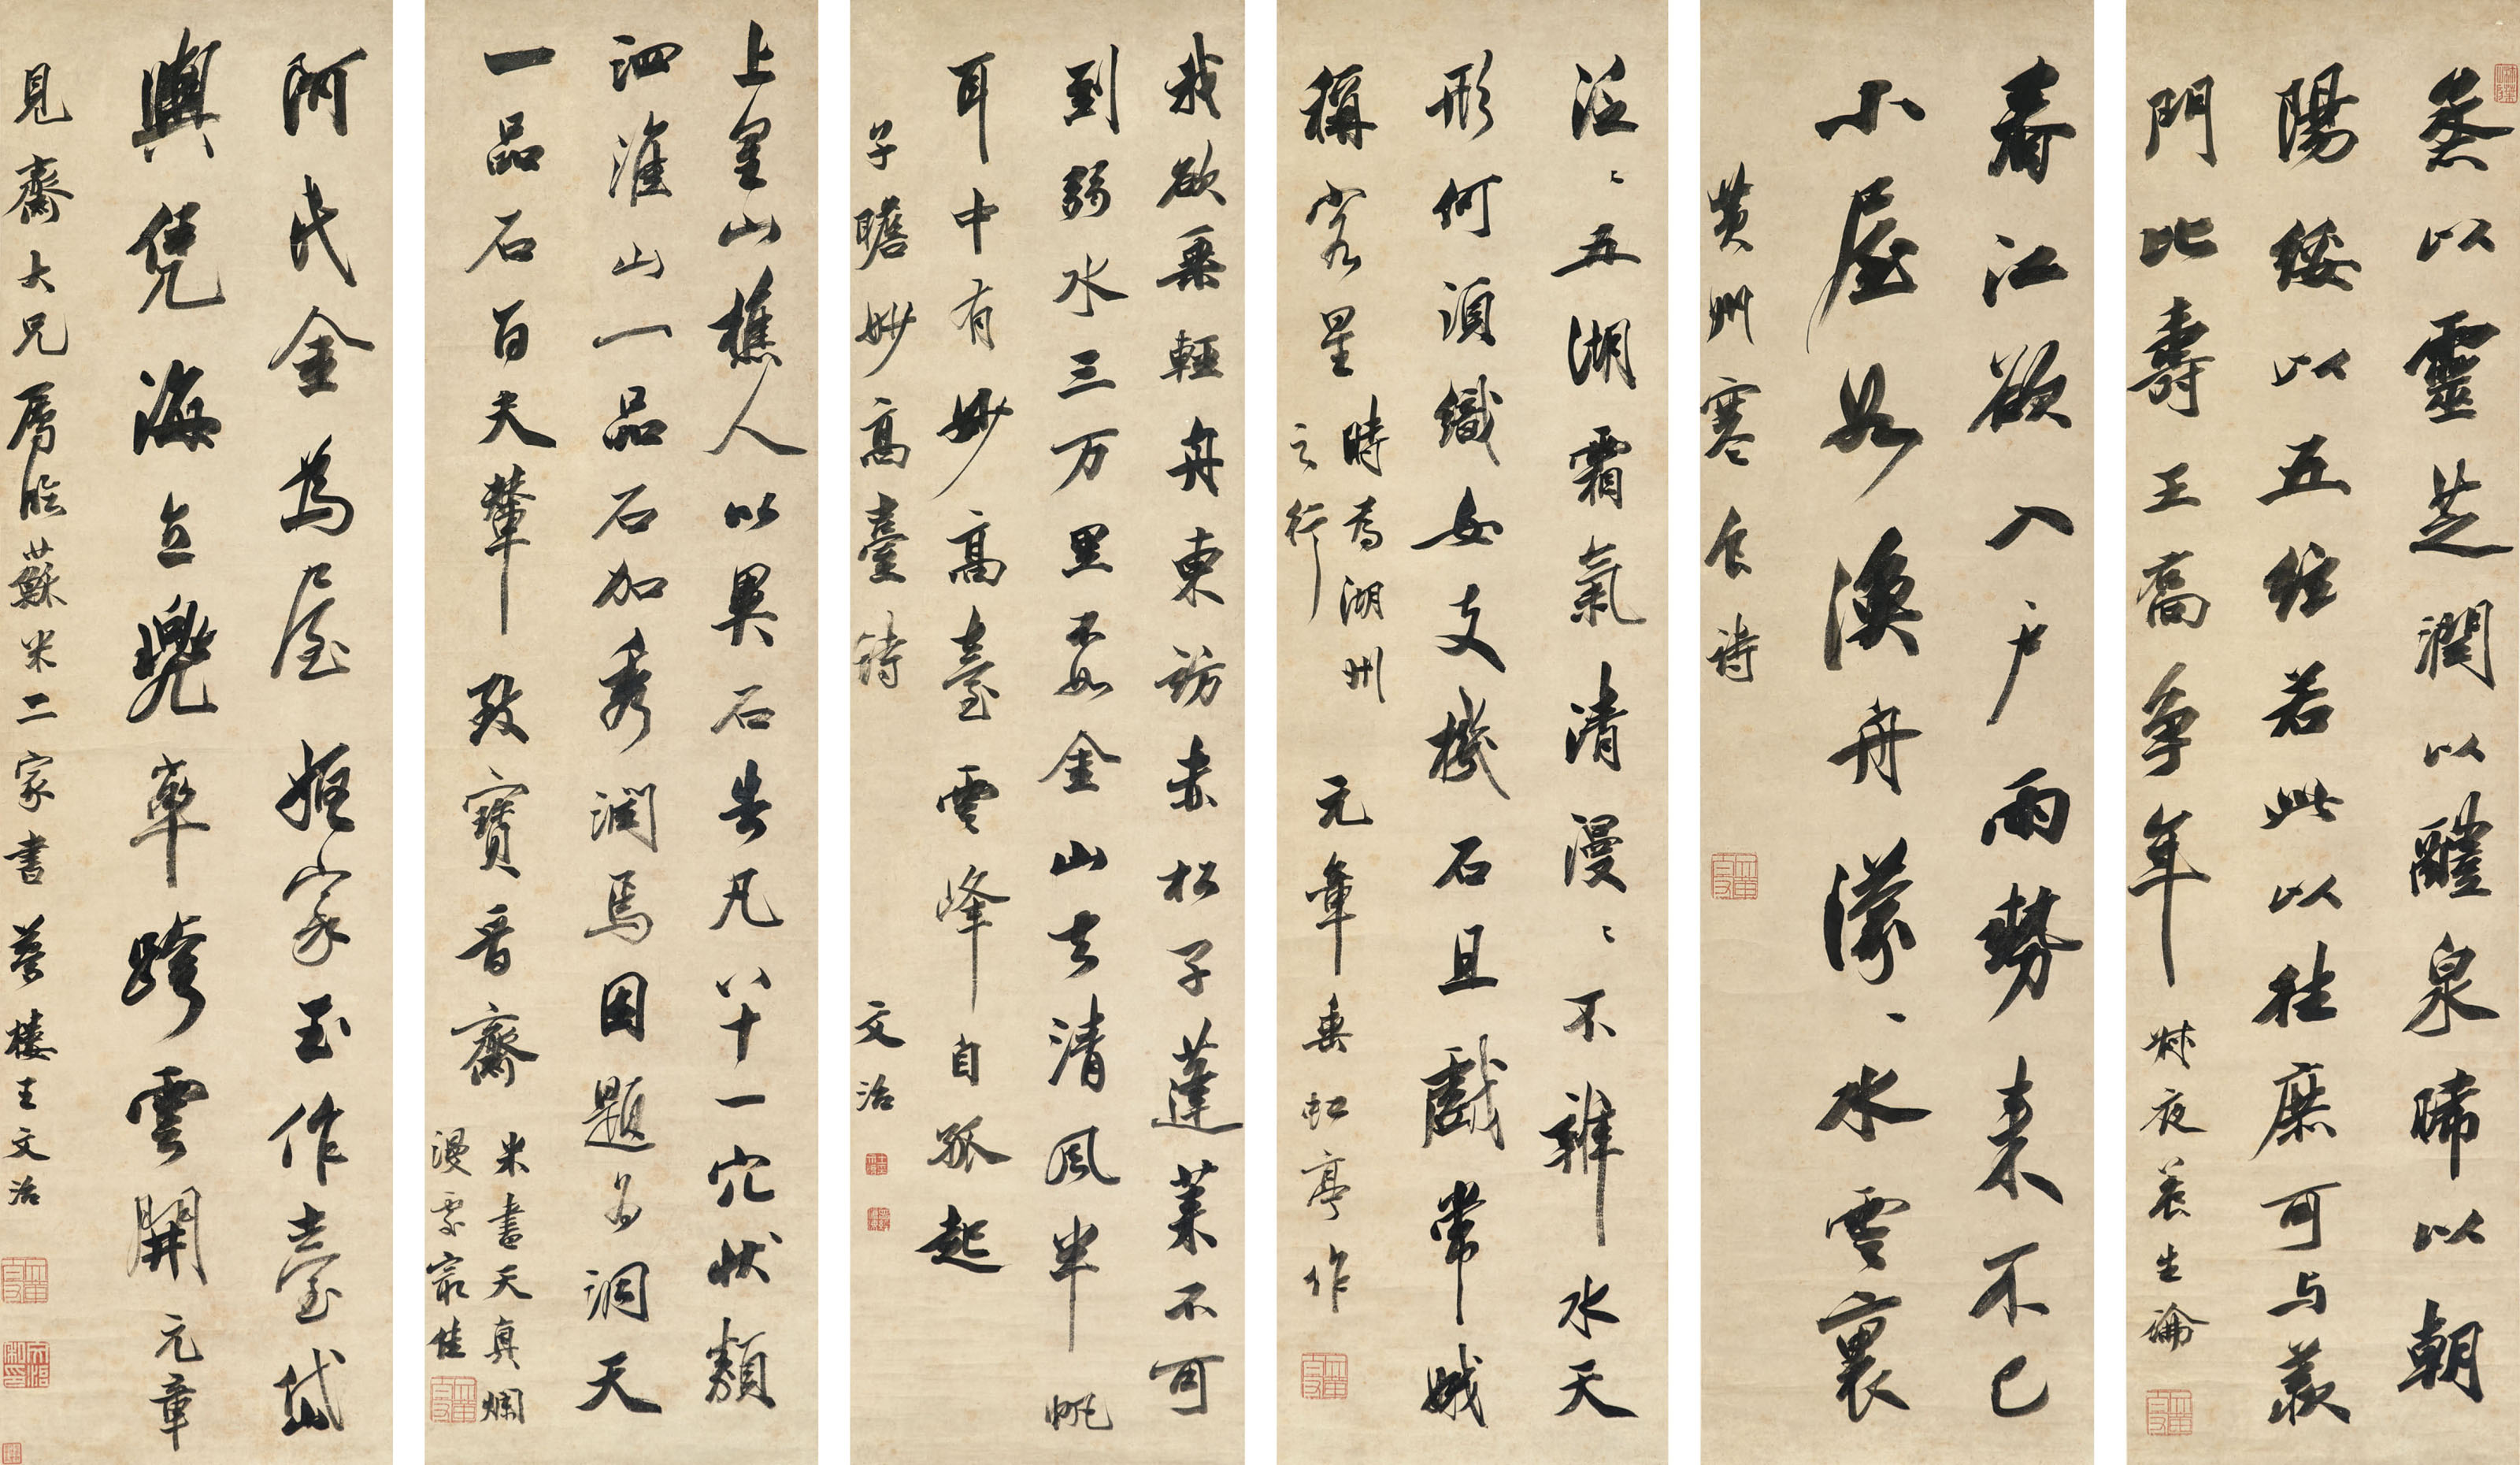 蒸以靈芝潤以醴泉晞以朝
陽綏以以五絃若此以往庶可与羡
門比壽王喬争年
叔夜養生論
春江欲入户雨勢來不已
小屋如漁舟濛、水雲裏
黄州寒食詩
泛〻五湖霜氣清漫〻不辨水天
形何須織女支機石且戲常娥
稱客星
時為湖州
之行
元章垂虹亭作
我欲乘輕舟東訪赤松子蓬莱不可
到弱水三万里不如金山去清風半帆
耳中有妙高臺雲峰自孤起
子瞻妙高臺詩
文治
上皇山樵人以異石告凡八十一穴状類
泗淮山一品石加秀潤焉因題為洞天
一品石百夫輦致寶晋齋
米書天真爛
漫處冣佳
阿氏金為屋姬家玉作臺岱
輿凭海立兜率跨雲開元章
見齋大兄屬臨蘇米二家書夢楼王文治